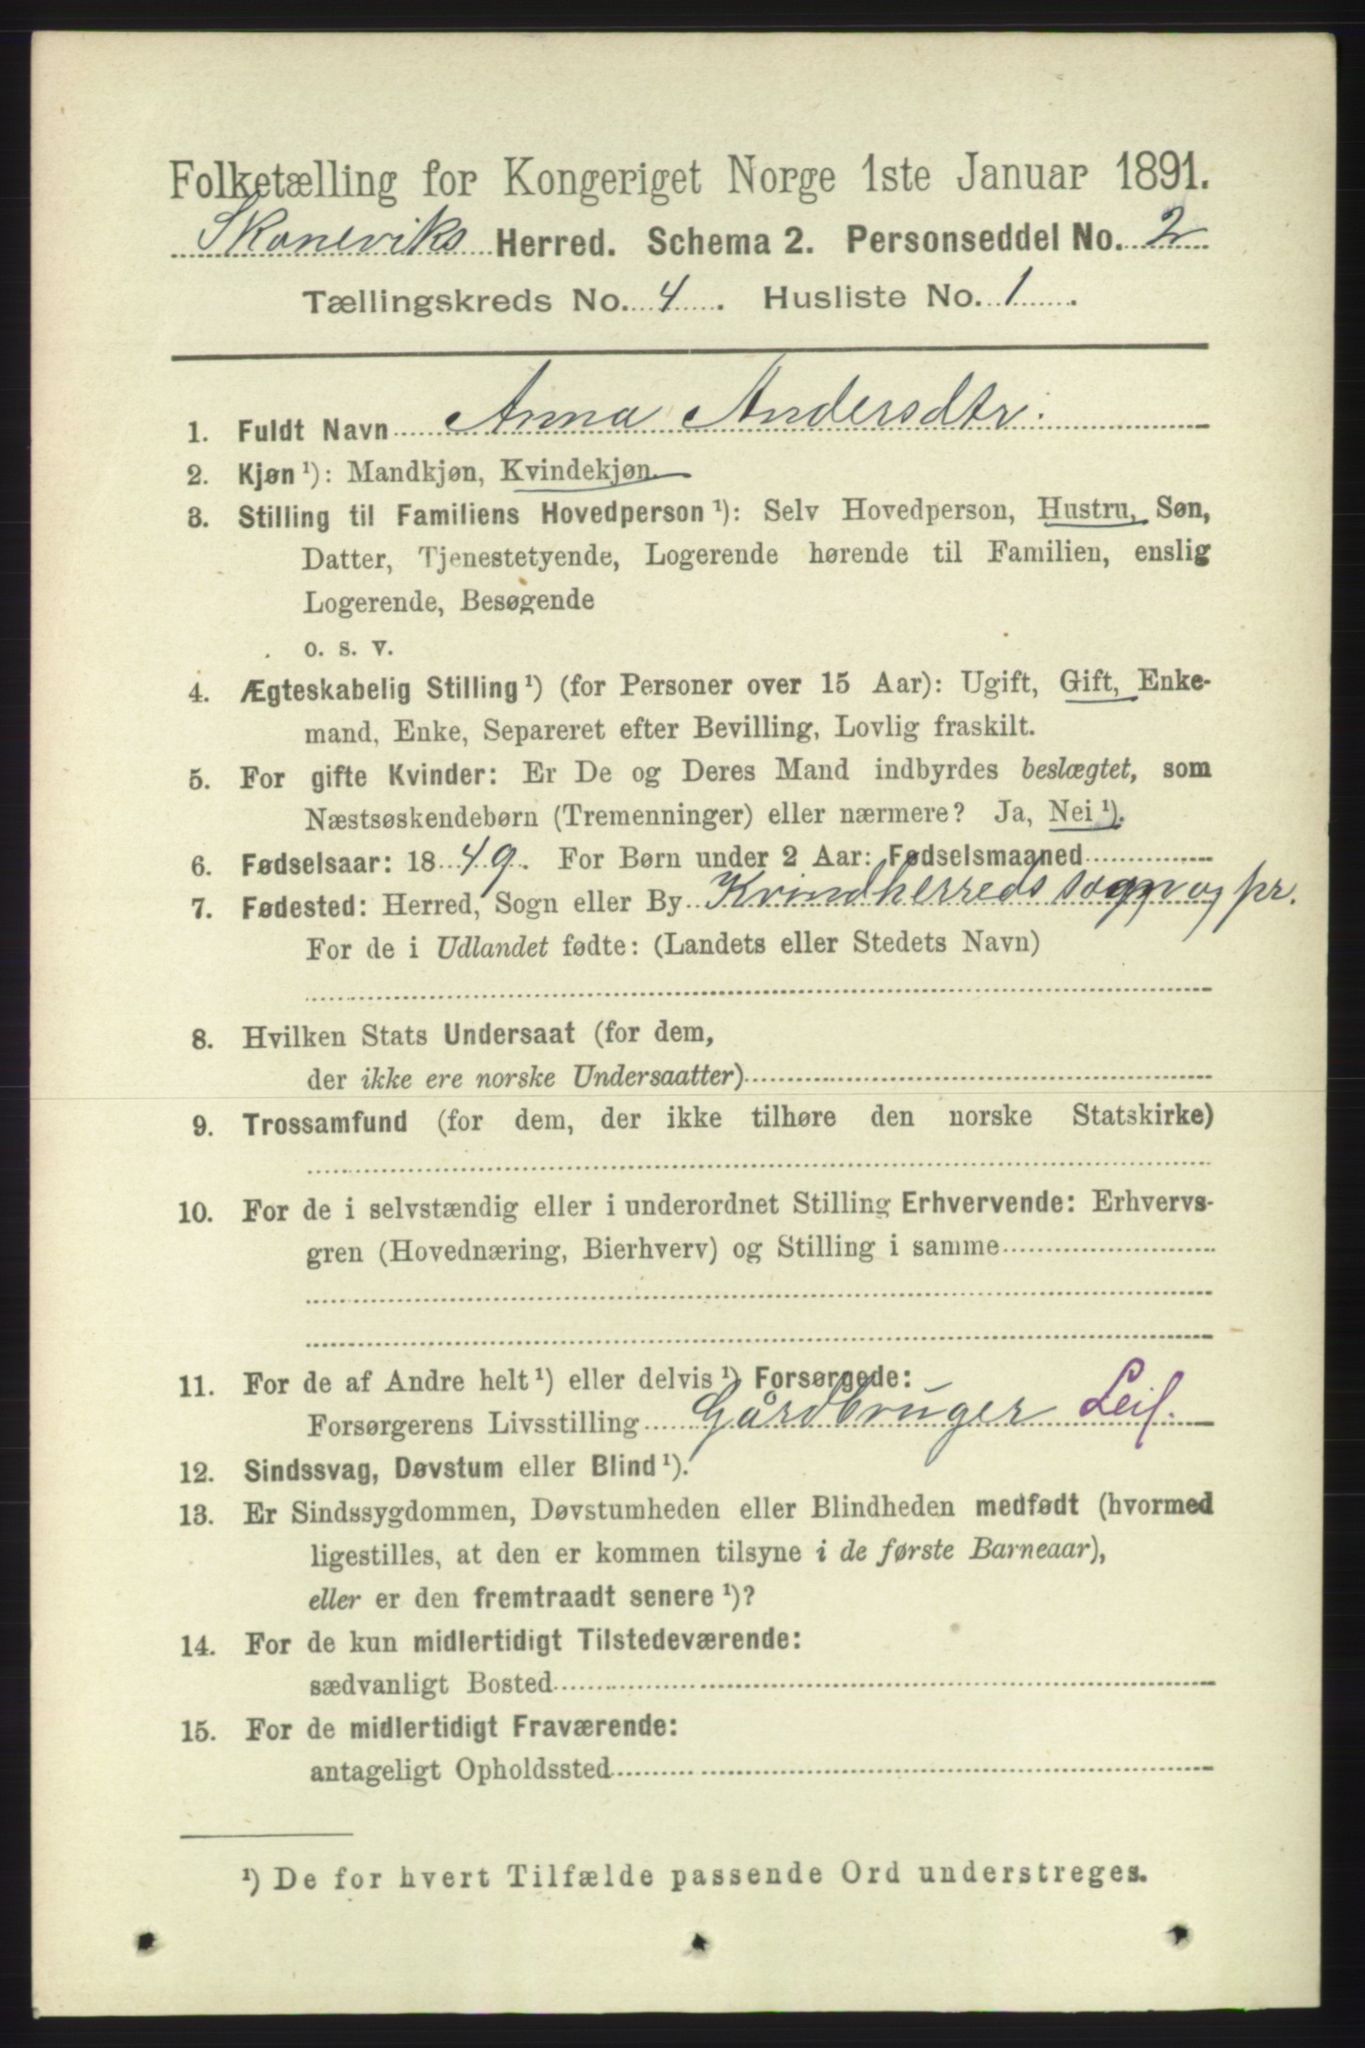 Folketælling for Kongeriget Norge 1ste Januar 1891.
Skoneviks Herred. Schema 2. Personseddel No. 2
Tællingskreds No. 4. Husliste No. 1.
1. Fuldt Navn Anna Andersdtr.
2. Kjøn ¹): Mandkjøn, Kvindekjøn.
3. Stilling til Familiens Hovedperson ¹): Selv Hovedperson, Hustru, Søn,
Datter, Tjenestetyende, Logerende hørende til Familien, enslig
Logerende, Besøgende
o. s. v.
4. Ægteskabelig Stilling ¹) (for Personer over 15 Aar): Ugift, Gift, Enke-
mand, Enke, Separeret efter Bevilling, Lovlig fraskilt.
5. For gifte Kvinder: Er De og Deres Mand indbyrdes beslægtet, som
Næstsøskendebørn (Tremenninger) eller nærmere? Ja, Nei ¹).
6. Fødselsaar: 1849. For Børn under 2 Aar: Fødselsmaaned
7. Fødested: Herred, Sogn eller By Kvindherreds sogn og pr.
For de i Udlandet fødte: (Landets eller Stedets Navn)
8. Hvilken Stats Undersaat (for dem,
der ikke ere norske Undersaatter)
9. Trossamfund (for dem, der ikke tilhøre den norske Statskirke)
10. For de i selvstændig eller i underordnet Stilling Erhvervende: Erhvervs-
gren (Hovednæring, Bierhverv) og Stilling i samme
11. For de af Andre helt ¹) eller delvis ¹) Forsørgede:
Forsørgerens Livsstilling Gårdbruger Leil.
12. Sindssvag, Døvstum eller Blind ¹).
13. Er Sindssygdommen, Døvstumheden eller Blindheden medfødt (hvormed
ligestilles, at den er kommen tilsyne i de første Barneaar),
eller er den fremtraadt senere ¹)?
14. For de kun midlertidigt Tilstedeværende:
sædvanligt Bosted
15. For de midlertidigt Fraværende:
antageligt Opholdssted
¹) De for hvert Tilfælde passende Ord understreges.